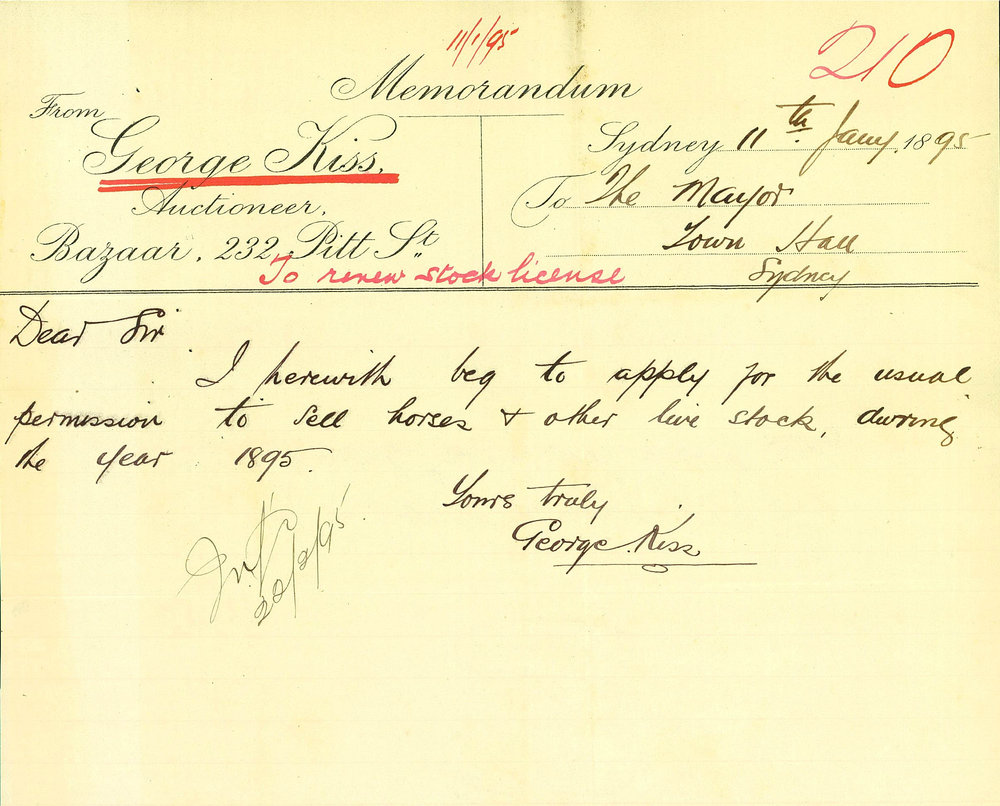 11/1/95
210
Memorandum
From
George Kiss,
Auctioneer,
Bazaar, 232, Pitt St.
Sydney 11th Jany 1895
To The Mayor
Town Hall
Sydney
To renew stock license
Dear Sir
I herewith beg to apply for the usual
permission to sell horses & other live stock, during
the year 1895.
Yours truly
George Kiss
/2/95